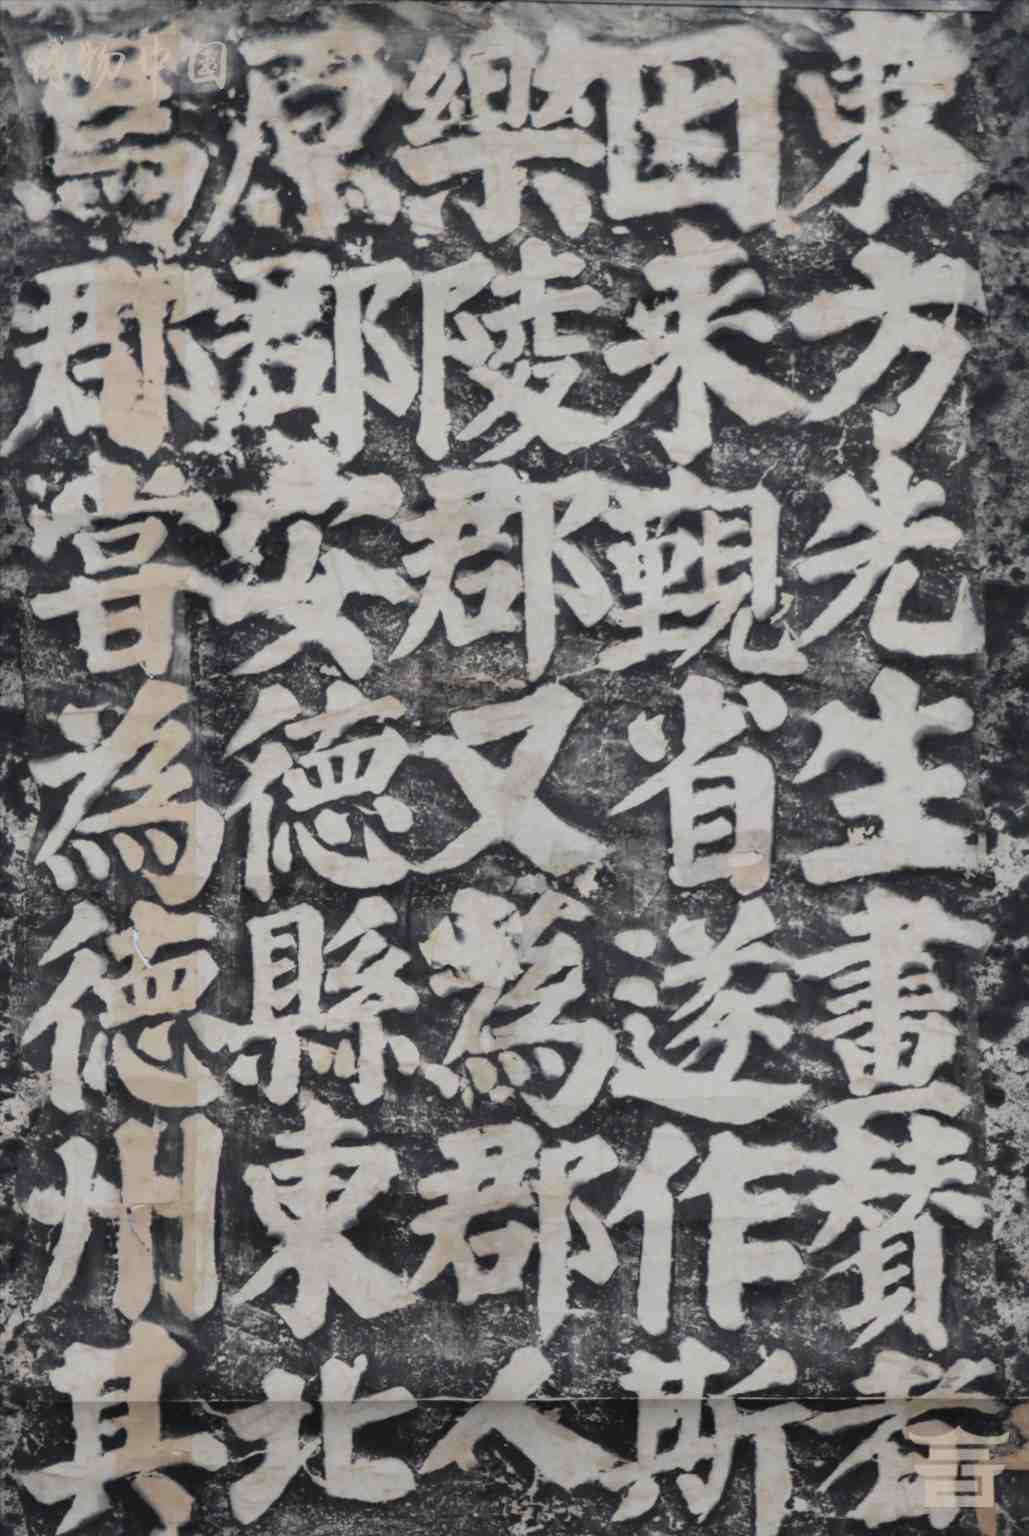 東方先生畫贊者
因来覲省遂作斯
樂陵郡又為郡人
原郡安德縣東北
焉郡嘗為德州其
博物中國